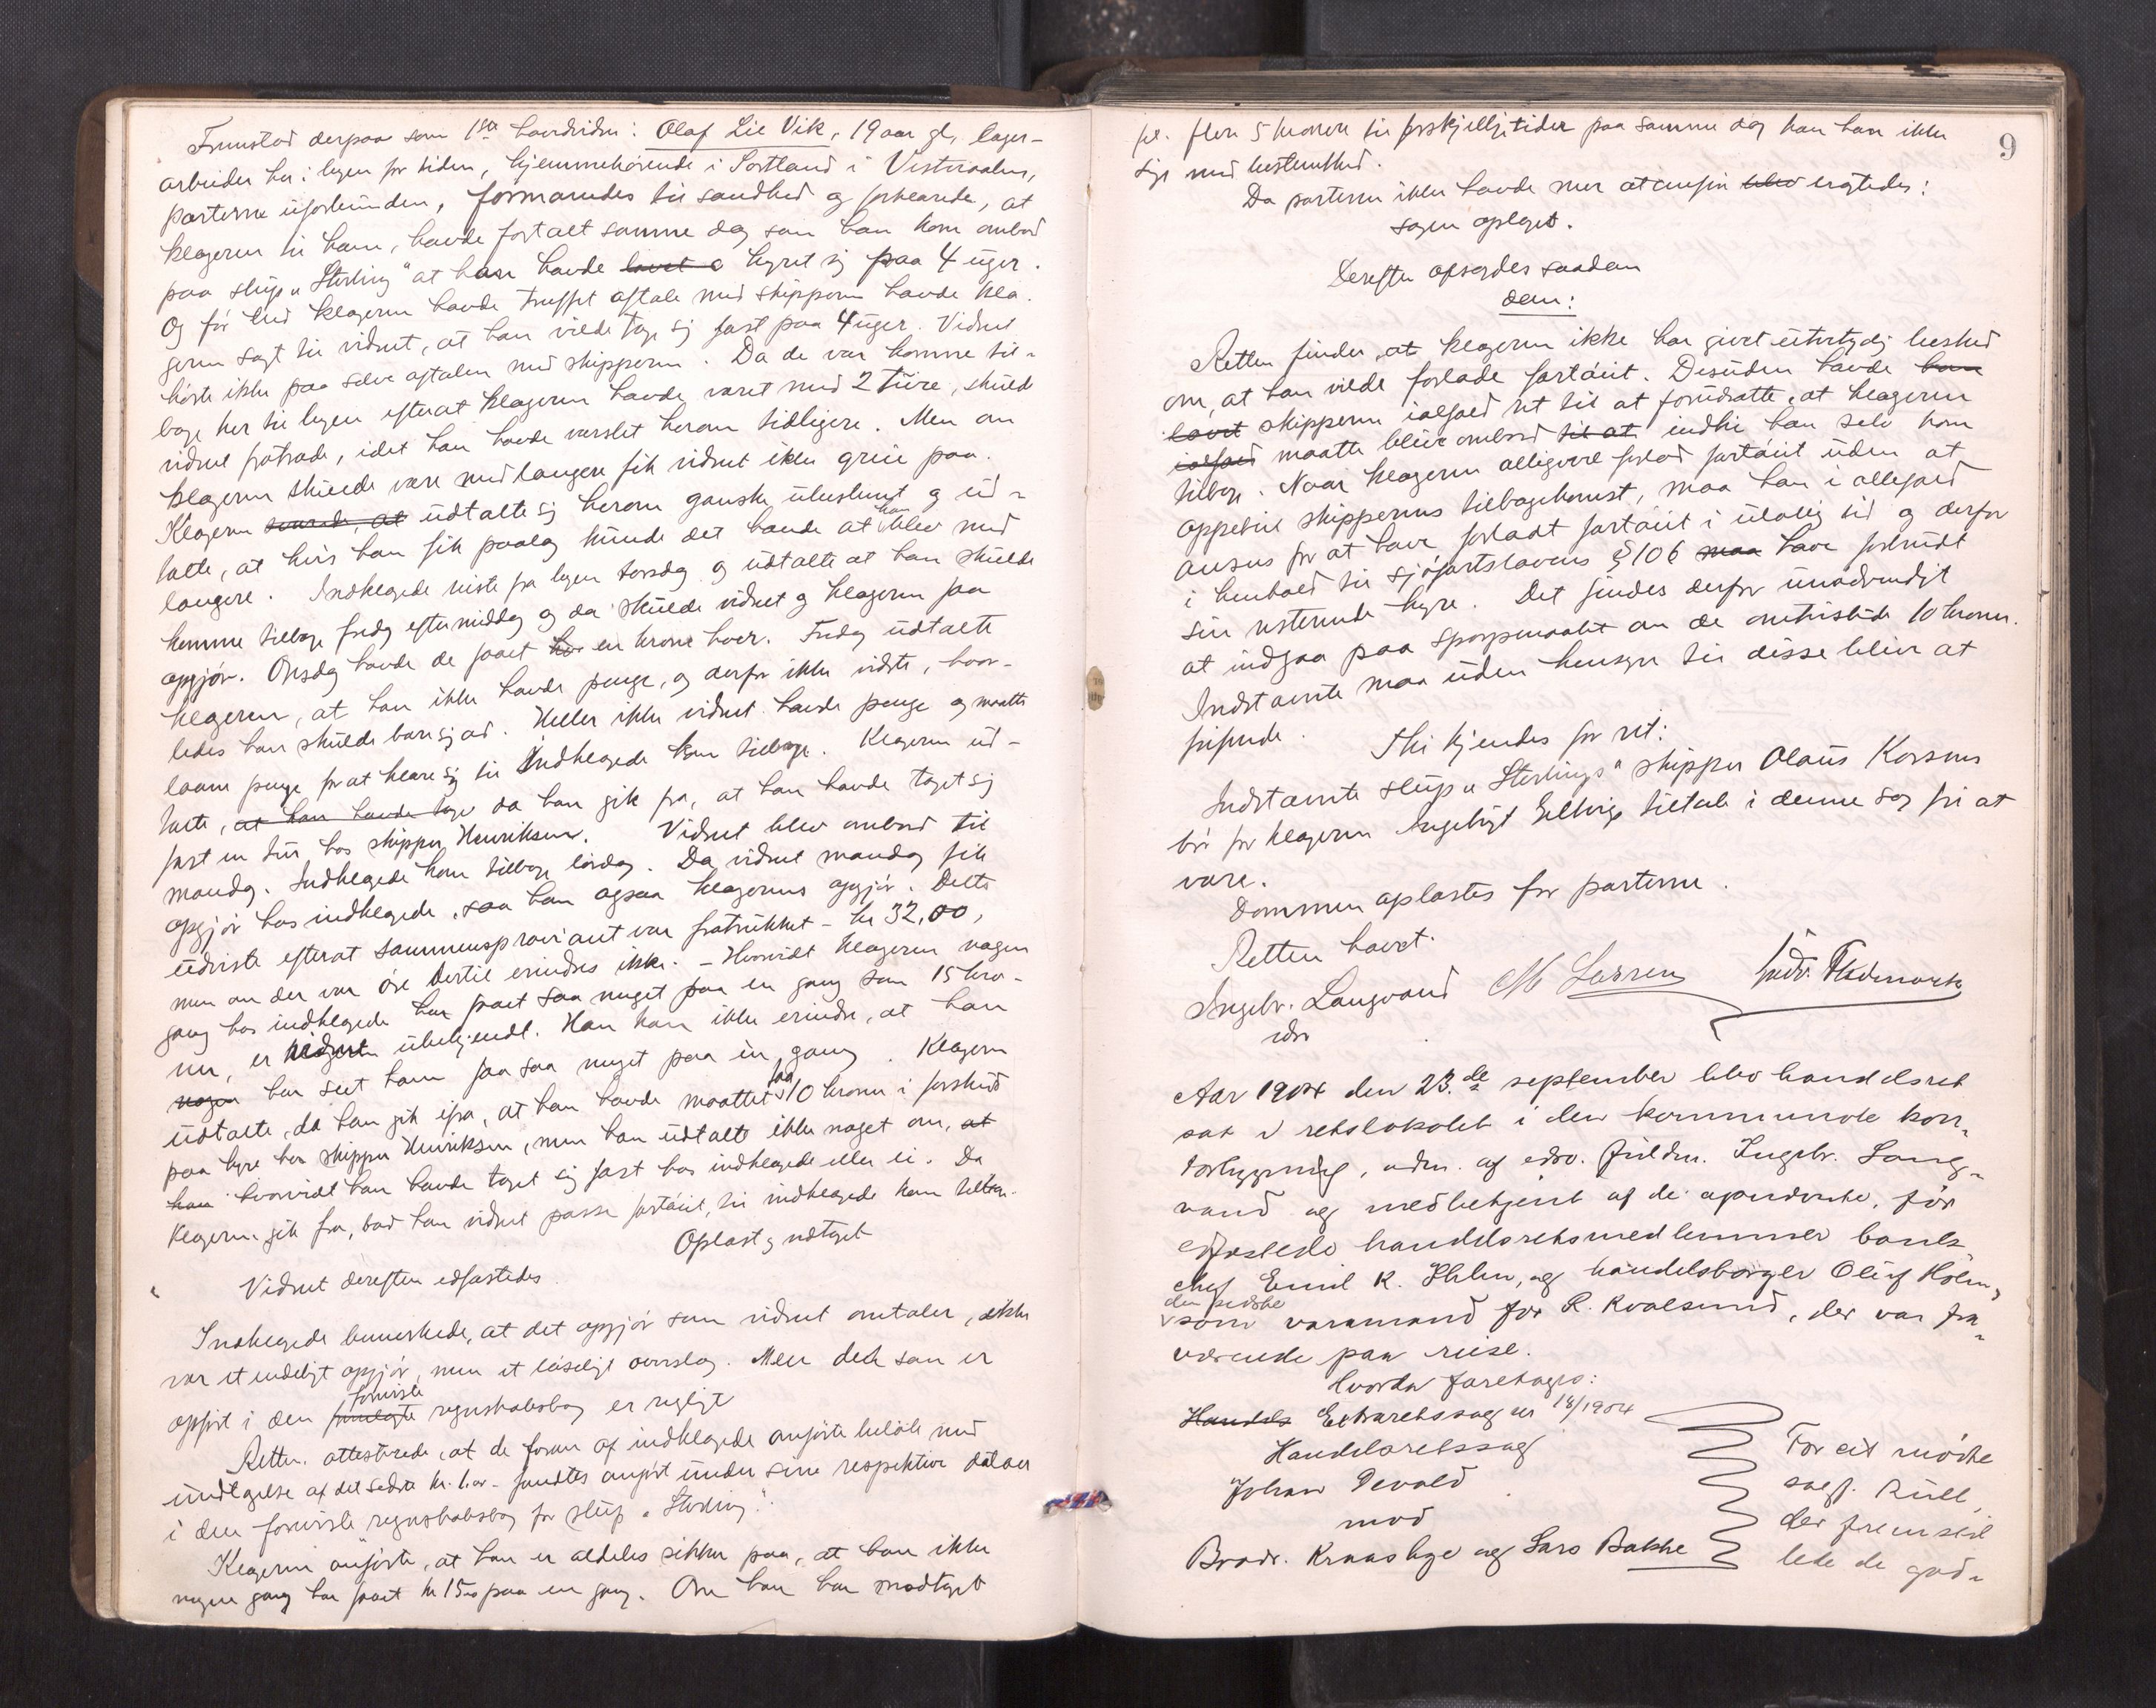 Fremstod derpaa som 1ste hovedvidne: Olaf Lie Vik, 19 aar gl, lager-
arbeider her i byen for tiden, hjemmehørende i Sortland i Vesteraalen,
parterne uforbunden, formanedes til sandhed og forklarede, at
klageren til ham, havde fortalt samme dag som han kom ombord
paa slup „Sterling" at han havde lovet a hyret sig paa 4 uger.
Og før end klageren havde truffet aftale med skipperen havde kla-
geren sagt til vidnet, at han vilde tage sig fast paa 4 uger. Vidnet
hørte ikke paa selve aftalen med skipperen. Da de var komne til-
bage her til byen efterat klageren havde været med 2 ture, skulde
vidnet fratræde, idet han havde varslet herom tidligere. Men om
klageren skulde være med længere fik vidnet ikke greie paa.
Klageren svarede, at udtalte sig herom ganske ubestemt og ud-
talte, at hvis han fik paalæg kunde det hænde at han blev med
længere. Indklagede reiste fra byen torsdag og udtalte at han skulde
komme tilbage fredag eftermiddag og da skulde vidnet og klageren faa
opgjør. Onsdag havde de faaet en krone hver. Fredag udtalte
klageren, at han ikke havde penge, og derfor ikke vidste, hvor-
ledes han skulde bære sig ad. Heller ikke vidnet havde penge og maatte
laane penge for at klare sig til indklagede kom tilbage. Klageren ud-
talte, at han havde tage da han gik fra, at han havde taget sig
fast en tur hos skipper Henriksen. Vidnet blev ombord til
mandag. Indklagede kom tilbage lørdag. Da vidnet mandag fik
opgjør hos indklagede, saa han ogsaa klagerens opgjør. Dette
udviste efterat sammensproviant var fratrukket – kr 32,00,
men om der var øre dertil erindres ikke. – Hvorvidt klageren nogen
gang hos indklagede har faaet saa meget paa en gang som 15 kro-
ner, er vidnet ubekjendt. Han kan ikke erindre, at han
nogen har seet ham faa saa meget paa en gang. Klageren
udtalte, da han gik ifra, at han havde maattet faa 10 kroner i forskud
paa hyre hos skipper Henriksen, men han udtalte ikke noget om, at
han hvorvidt han havde taget sig fast hos indklagede eller ei. Da
klageren gik fra, bad han vidnet passe fartøiet, til indklagede kom tilbage.
Oplæst og vedtaget
Vidnet derefter edfæstedes.
Indklagede bemerkede, at det opgjør som vidnet omtaler, ikke
var et endeligt opgjør, men et løseligt overslag. Men det som er
opført i den foreviste fremlagte regnskabsbog er rigtigt
Retten attesterede, at de foran af indklagede anførte beløb med
undtagelse af det sidste kr. 1.00 fandtes anført under sine respektive datoer
i den foreviste regnskabsbog for slup „Sterling".
Klageren anførte, at han er aldeles sikker paa, at han ikke
nogen gang har faaet kr 15.00 paa en gang. Om han har modtaget
9
flere 5 kroner til forskjellige tider paa samme dag kan han ikke
sige med bestemthed.
Da parterne ikke havde mer at anføre blev eragtedes:
sagen optaget.
Derefter afsagdes saadan
dom:
Retten finder, at klageren ikke har givet utvetydig besked
om, at han vilde forlade fartøiet. Desuden havde han
lovet skipperen ialfald ret til at forudsætte, at klageren
ialfald maatte blive ombord til at indtil han selv kom
tilbage. Naar klageren alligevel forlod fartøiet uden at
oppebie skipperens tilbagekomst, maa han i allefald
ansees for at have forladt fartøiet i utidig tid og derfor
i henhold til sjøfartslovens § 106 maa have forbrudt
sin resterende hyre. Det findes derfor unødvendigt
at indgaa paa spørgsmaalet om de omtvistede 10 kroner.
Indstævnte maa uden hensyn til disse blive at
frifinde.
Thi kjendes for ret:
Indstævnte slup „Sterlings" skipper Olaus Korsnes
bør for klageren Ingebrigt Seltvigs tiltale i denne sag fri at
være.
Dommen oplæstes for parterne.
Retten hævet.
Ingebr. Langvand M Larsen
edsv
Aar 1904 den 23.de september blev handelsret
sat i retslokalet i den kommunale kon-
torbygning, adm. af edsv. fuldm. Ingebr. Lang-
vand og medbetjent af de opnævnte, før
edfæstede handelsretsmedlemmer bank-
chef Emil K. Holm, og handelsborger Oluf Holm,
den sidste
som varamand for R. Kvalsund, der var fra-
værende paa reise.
Hvorda foretages:
Handels Extraretssag nr 18/1904
Handelsretssag
Johan Devold
mod
Brødr. Kraakøe og Lars Bakke
For cit. mødte
sagf. Rull,
der fremstil
lede de god-